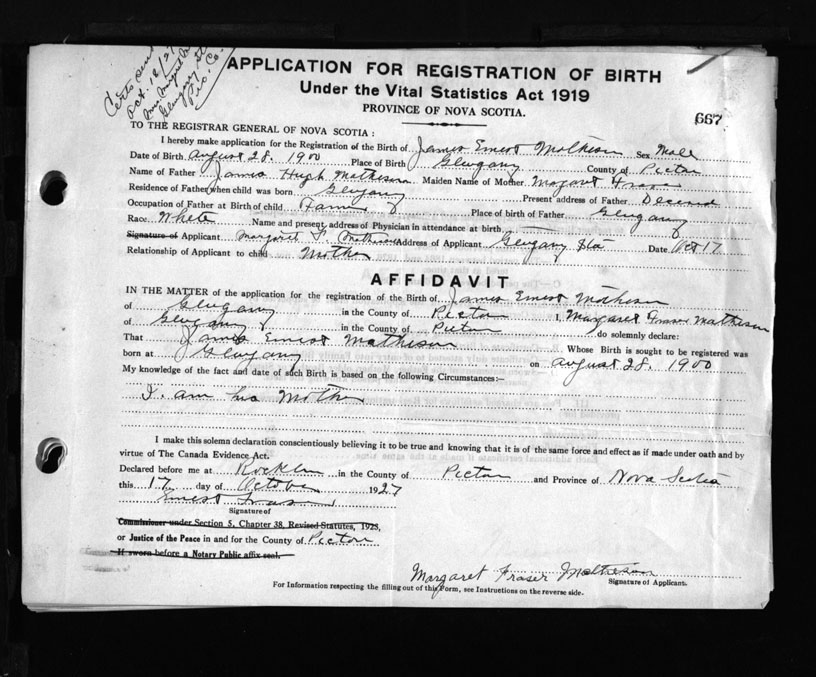 Certs sent
Oct. 18/27
Glengary Sta
Pic. Co.
APPLICATION FOR REGISTRATION OF BIRTH
Under the Vital Statistics Act 1919
PROVINCE OF NOVA SCOTIA.
667
TO THE REGISTRAR GENERAL OF NOVA SCOTIA:
I hereby make application for the Registration of the Birth of James Ernest Matheson Sex Male
Date of Birth August 28. 1900 Place of Birth Glengary County of Pictou
Name of Father James Hugh Matheson Maiden Name of Mother Margaret Fraser
Residence of Father when child was born Glengary Present address of Father Deceased
Occupation of Father at Birth of child Farmer Place of birth of Father Glengary
Race White Name and present address of Physician in attendance at birth
Signature of Applicant Margaret F. Matheson Address of Applicant Glengary Sta Date Oct 17
Relationship of Applicant to child Mother
AFFIDAVIT
IN THE MATTER of the application for the registration of the Birth of James Ernest Matheson
of Glengary in the County of Pictou I, Margaret Fraser Matheson
of Glengary in the County of Pictou do solemnly declare:
That James Ernest Matheson Whose Birth is sought to be registered was
born at Glengary on August 28. 1900
My knowledge of the fact and date of such Birth is based on the following Circumstances:—
I am his Mother
I make this solemn declaration conscientiously believing it to be true and knowing that it is of the same force and effect as if made under oath and by
virtue of The Canada Evidence Act.
Declared before me at Rocklin in the County of Pictou and Province of Nova Scotia
this 17 day of October 1927
Ernest Fraser
Signature of
Commissioner under Section 5, Chapter 38, Revised Statutes, 1923,
or Justice of the Peace in and for the County of Pictou
If sworn before a Notary Public affix seal.
Margaret Fraser Matheson
Signature of Applicant.
For Information respecting the filling out of this Form, see Instructions on the reverse side.